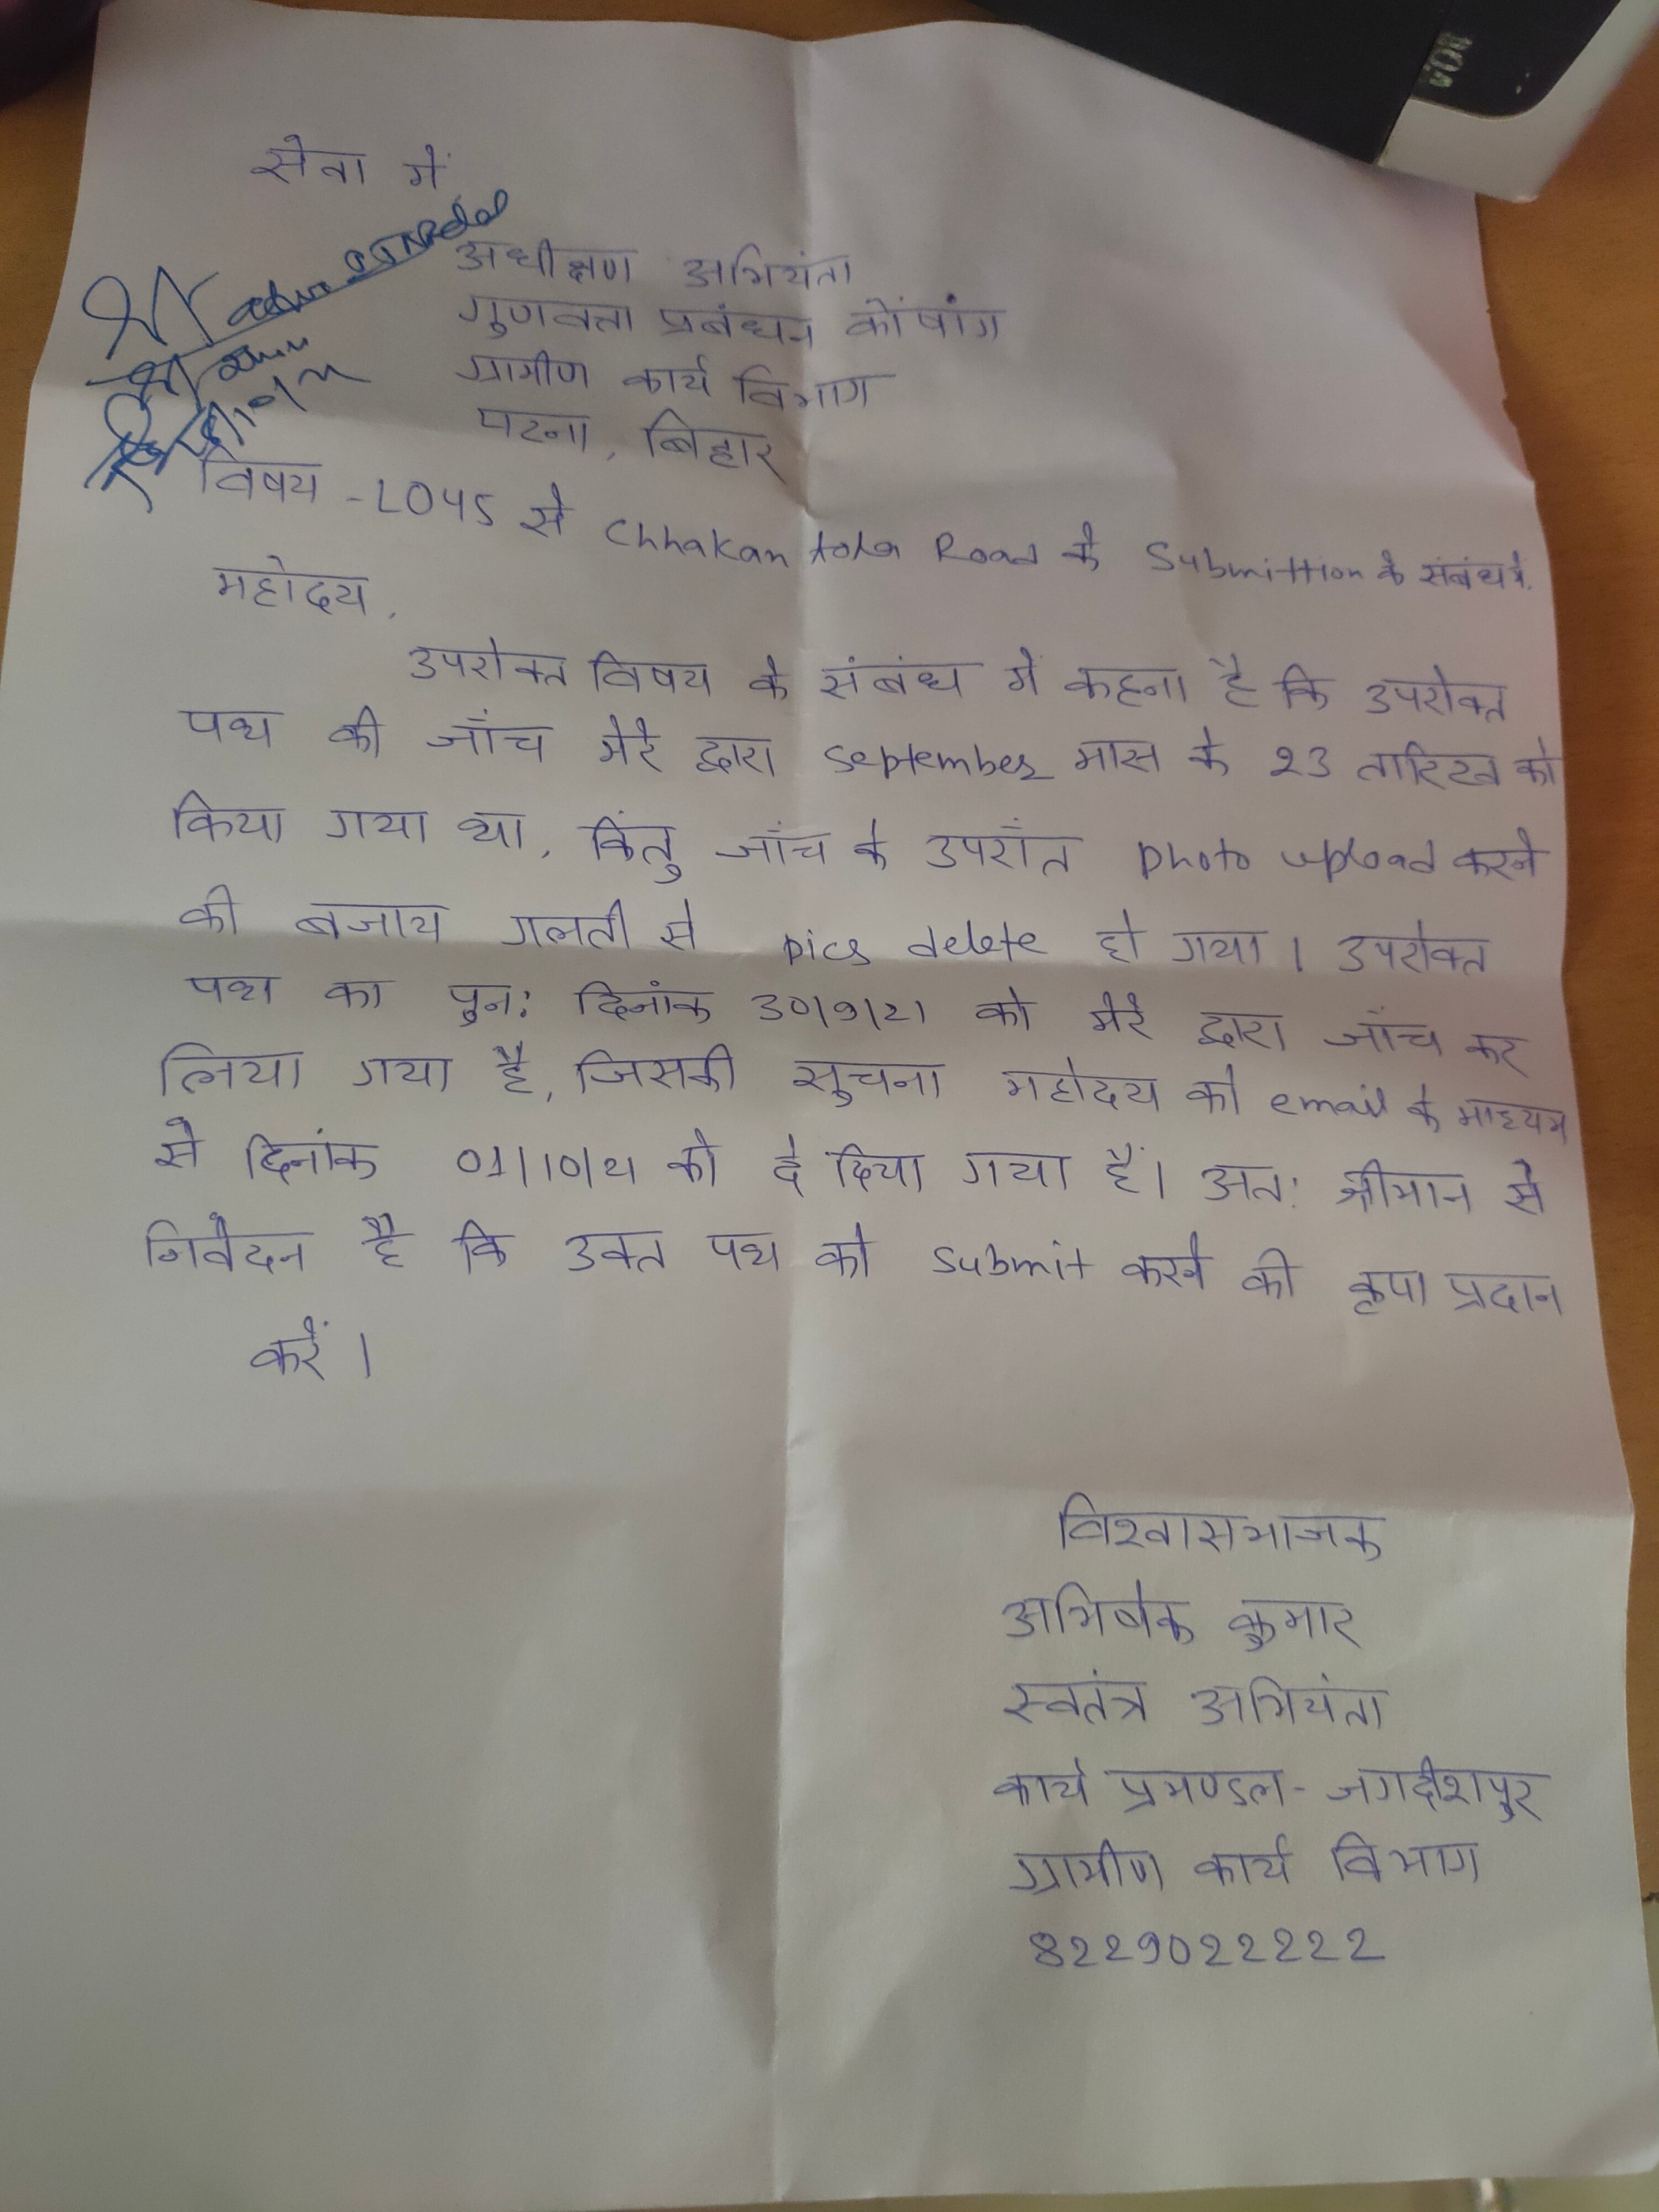 सेवा में
अधीक्षण अभियंता
गुणवत्ता प्रबंधन कोंषांग
ग्रामीण कार्य विभाग
पटना, बिहार
विषय - L045 से Chhakan tola Road के Submittion के संबंध में.
महोदय,
उपरोक्त विषय के संबंध में कहना है कि उपरोक्त
पथ की जाँच मेरे द्वारा September मास के 23 तारिख को
किया गया था, किंतु जाँच के उपराँत photo upload करने
की बजाय गलती से pics delete हो गया। उपरोक्त
पथ का पुन: दिनांक 30/9/21 को मेरे द्वारा जाँच कर
लिया गया है, जिसकी सुचना महोदय को email के माध्यम
से दिनांक 01/10/21 को दे दिया गया हैं। अत: श्रीमान से
निवेदन है कि उक्त पथ को submit करने की कृपा प्रदान
करें।
विश्वासभाजक
अभिषेक कुमार
स्वतंत्र अभियंता
कार्य प्रमण्डल - जगदीशपुर
ग्रामीण कार्य विभाग
8229022222